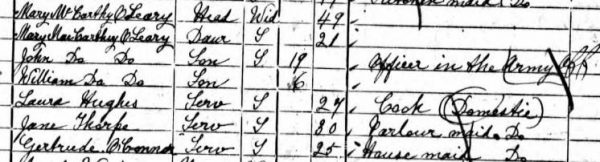 Kitchen maid Do
Mary McCarthy O'Leary Head Wid 49
Mary MacCarthy O'Leary Daur S 21
John Do Do Son S 19 Officer in the Army
William Do Do Son 16
Laura Hughes Serv S 27 Cook (Domestic)
Jane Thorpe Serv S 30 Parlour maid Do
Gertrude O'Connor Serv S 25 House maid Do